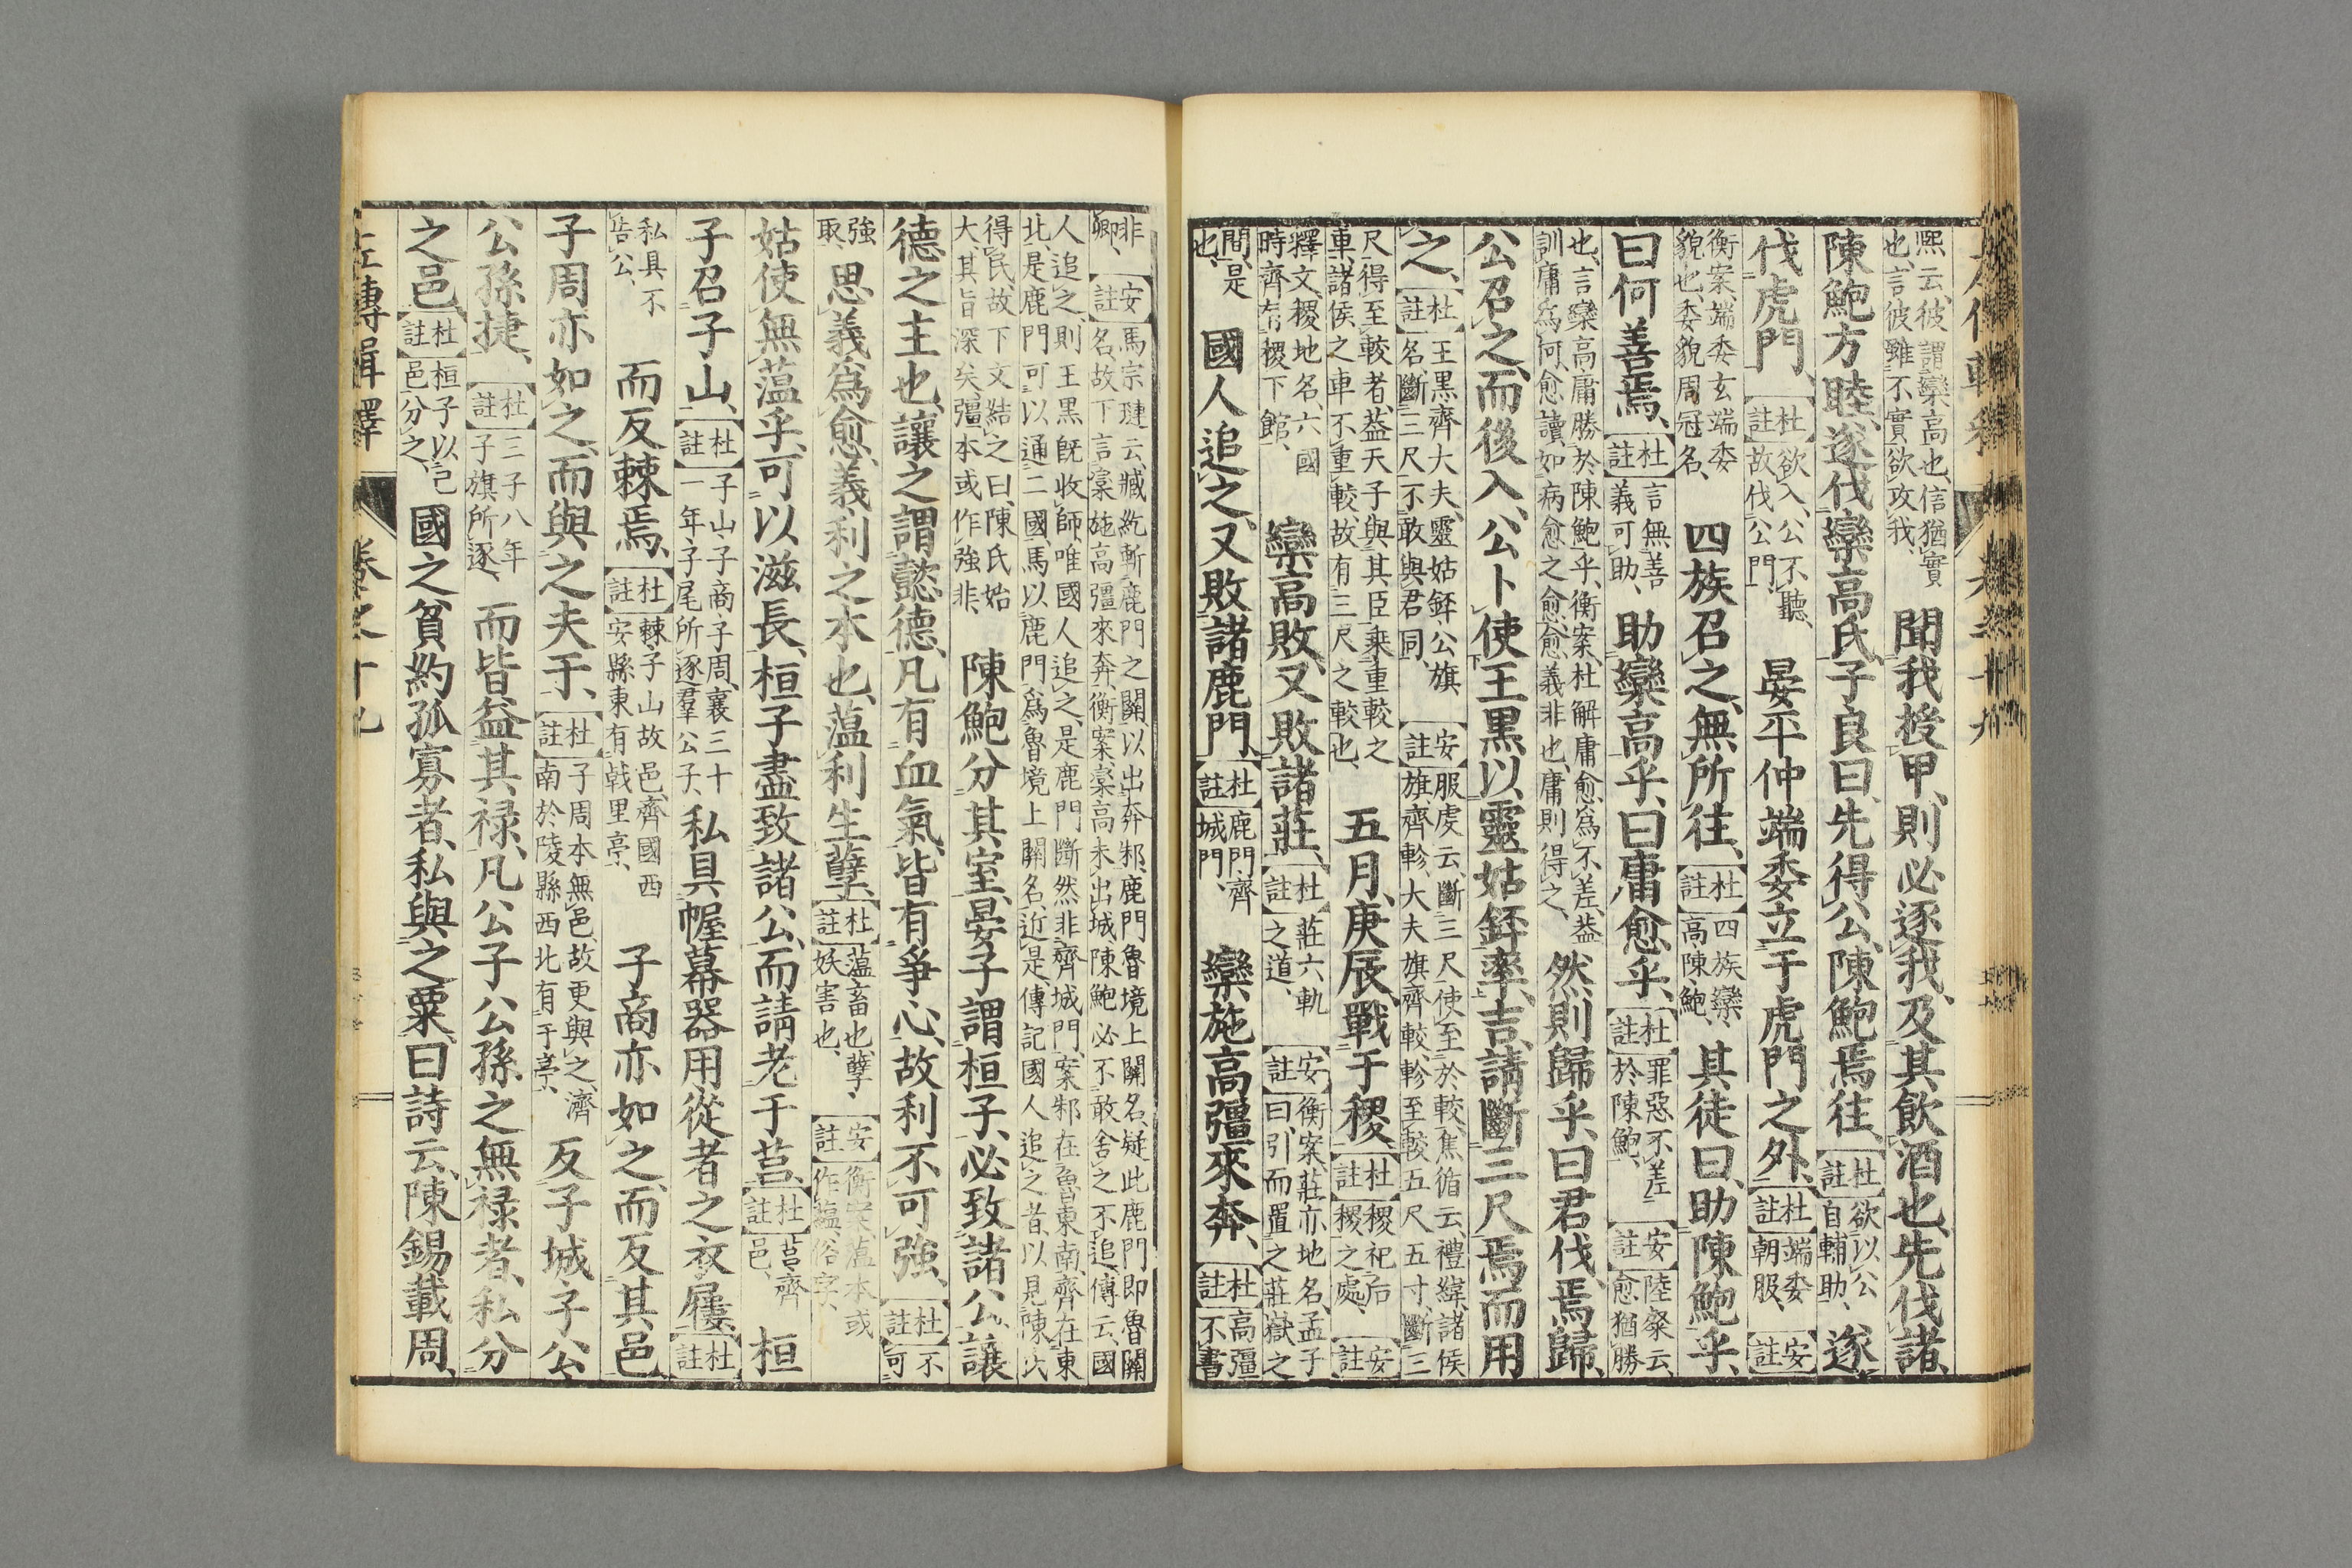 熙云、彼謂欒高也、信猶實
也、言彼雖不實欲攻我、
聞我授甲、則必逐我、及其飲酒也、先伐諸、
陳鮑方睦、遂伐欒高氏、子良曰、先得公、陳鮑焉往、
杜註 欲以公
自輔助、
遂
伐虎門、
杜註 欲入、公不聽、
故伐公門、
晏平仲端委立于虎門之外、
杜註 端委
朝服、
安註
衡案、端委玄端委
貌也、委貌周冠名、
四族召之、無所往、
杜註 四族欒、
高、陳、鮑、
其徒曰、助陳鮑乎、
曰何善焉、
杜註 言無善
義可助、
助欒高乎、曰庸愈乎、
杜註 罪惡不差
於陳鮑、
安註 陸粲云、
愈猶勝
也、言欒高庸勝於陳鮑乎、衡案、杜解庸愈爲不差、蓋
訓庸爲何、愈讀如病愈之愈、愈義非也、庸則得之、
然則歸乎、曰君伐、焉歸、
公召之、而後入、公卜使王黑以靈姑銔率、吉、請斷三尺焉而用
之、
杜註 王黑、齊大夫、靈姑銔、公旗
名、斷三尺、不敢與君同、
安註 服虔云、斷三尺使至於較、焦循云、禮緯、諸侯
旗齊軫、大夫旗齊較、軫至較五尺五寸、斷三
尺得至較者、蓋天子與其臣乘重較之
車、諸侯之車不重較、故有三尺之較也、
五月、庚辰、戰于稷、
杜註 稷祀后
稷之處、
安註
釋文、稷地名、六國
時齊有稷下館、
欒高敗、又敗諸莊、
杜註 莊六軌
之道、
安註 衡案、莊亦地名、孟子
曰、引而置之莊嶽之
間是
也、
國人追之、又敗諸鹿門、
杜註 鹿門、齊
城門、
欒施高彊來奔、
杜註 高彊
不書
非
卿、
安註 馬宗璉云、臧紇斬鹿門之關以出奔邾、鹿門魯境上關名、疑此鹿門即魯關
名、故下言欒施高彊來奔、衡案、欒高未出城、陳鮑必不敢舍之不追、傳云、國
人追之、則王黑既收師、唯國人追之、是鹿門斷然非齊城門、案邾在魯東南、齊在東
北、是鹿門可以通二國馬以鹿門爲魯境上關名、近是、傳記國人追之者、以見陳氏
得民、故下文結之曰、陳氏始
大、其旨深矣、彊本或作強非、
陳鮑分其室、晏子謂桓子、必致諸公、讓
德之主也、讓之謂懿德、凡有血氣、皆有爭心、故利不可強、
杜註 不
可
強
取
思義爲愈、義、利之本也、薀利生孽、
杜註 薀畜也、孽、
妖害也、
安註 衡案、薀本或
作蘊、俗字、
姑使無薀乎、可以滋長、桓子盡致諸公、而請老于莒、
杜註 莒齊
邑、
桓
子召子山、
杜註 子山、子商、子周、襄三十
一年子尾所逐羣公子、
私具幄幕器用從者之衣屨、
杜註
私具不
告公、
而反棘焉、
杜註 棘、子山故邑、齊國西
安縣東有戟里亭、
子商亦如之、而反其邑、
子周亦如之、而與之夫于、
杜註 子周本無邑、故更與之、濟
南於陵縣西北有于亭、
反子城子公
公孫捷、
杜註 三子八年
子旗所逐、
而皆益其祿、凡公子公孫之無祿者、私分
之邑、
杜註 桓子以己
邑分之、
國之貧約孤寡者、私與之粟、曰詩云、陳錫載周、
左傳輯釋 卷之十九